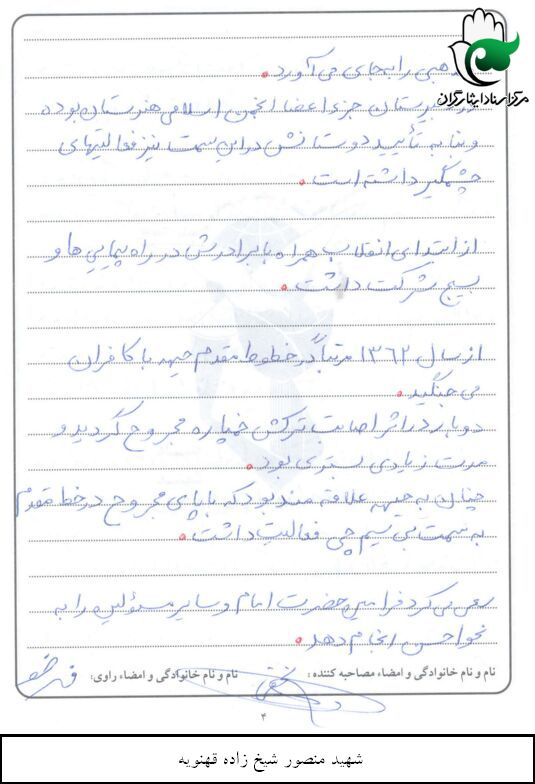 مرکز اسناد ایثارگران
مذهبی را بجای می آورد.
در هنرستان جزء اعضا انجمن اسلامی هنرستان بوده
و بنا به تأیید دوستانش در این سمت نیز فعالیتهای
چشمگیر داشته است.
از ابتدای انقلاب همراه با برادرش در راه پیمایی ها و
بسیج شرکت داشت.
از سال ۱۳۶۲ مرتباً در خطوط مقدم جبهه با کافران
می جنگید.
دوبار در اثر اصابت ترکش خمپاره مجروح گردید و
مدت زیادی بستری بود.
چنان به جبهه علاقه مند بود که با پای مجروح در خط مقدم
به سمت بی سیم چی فعالیت داشت.
سعی می کرد فرامین حضرت امام و سایر مسئولین را به
نحو احسن انجام دهد.
نام و نام خانوادگی و امضاء مصاحبه کننده: نام و نام خانوادگی و امضاء راوی:
۴
شهید منصور شیخ زاده قهنویه